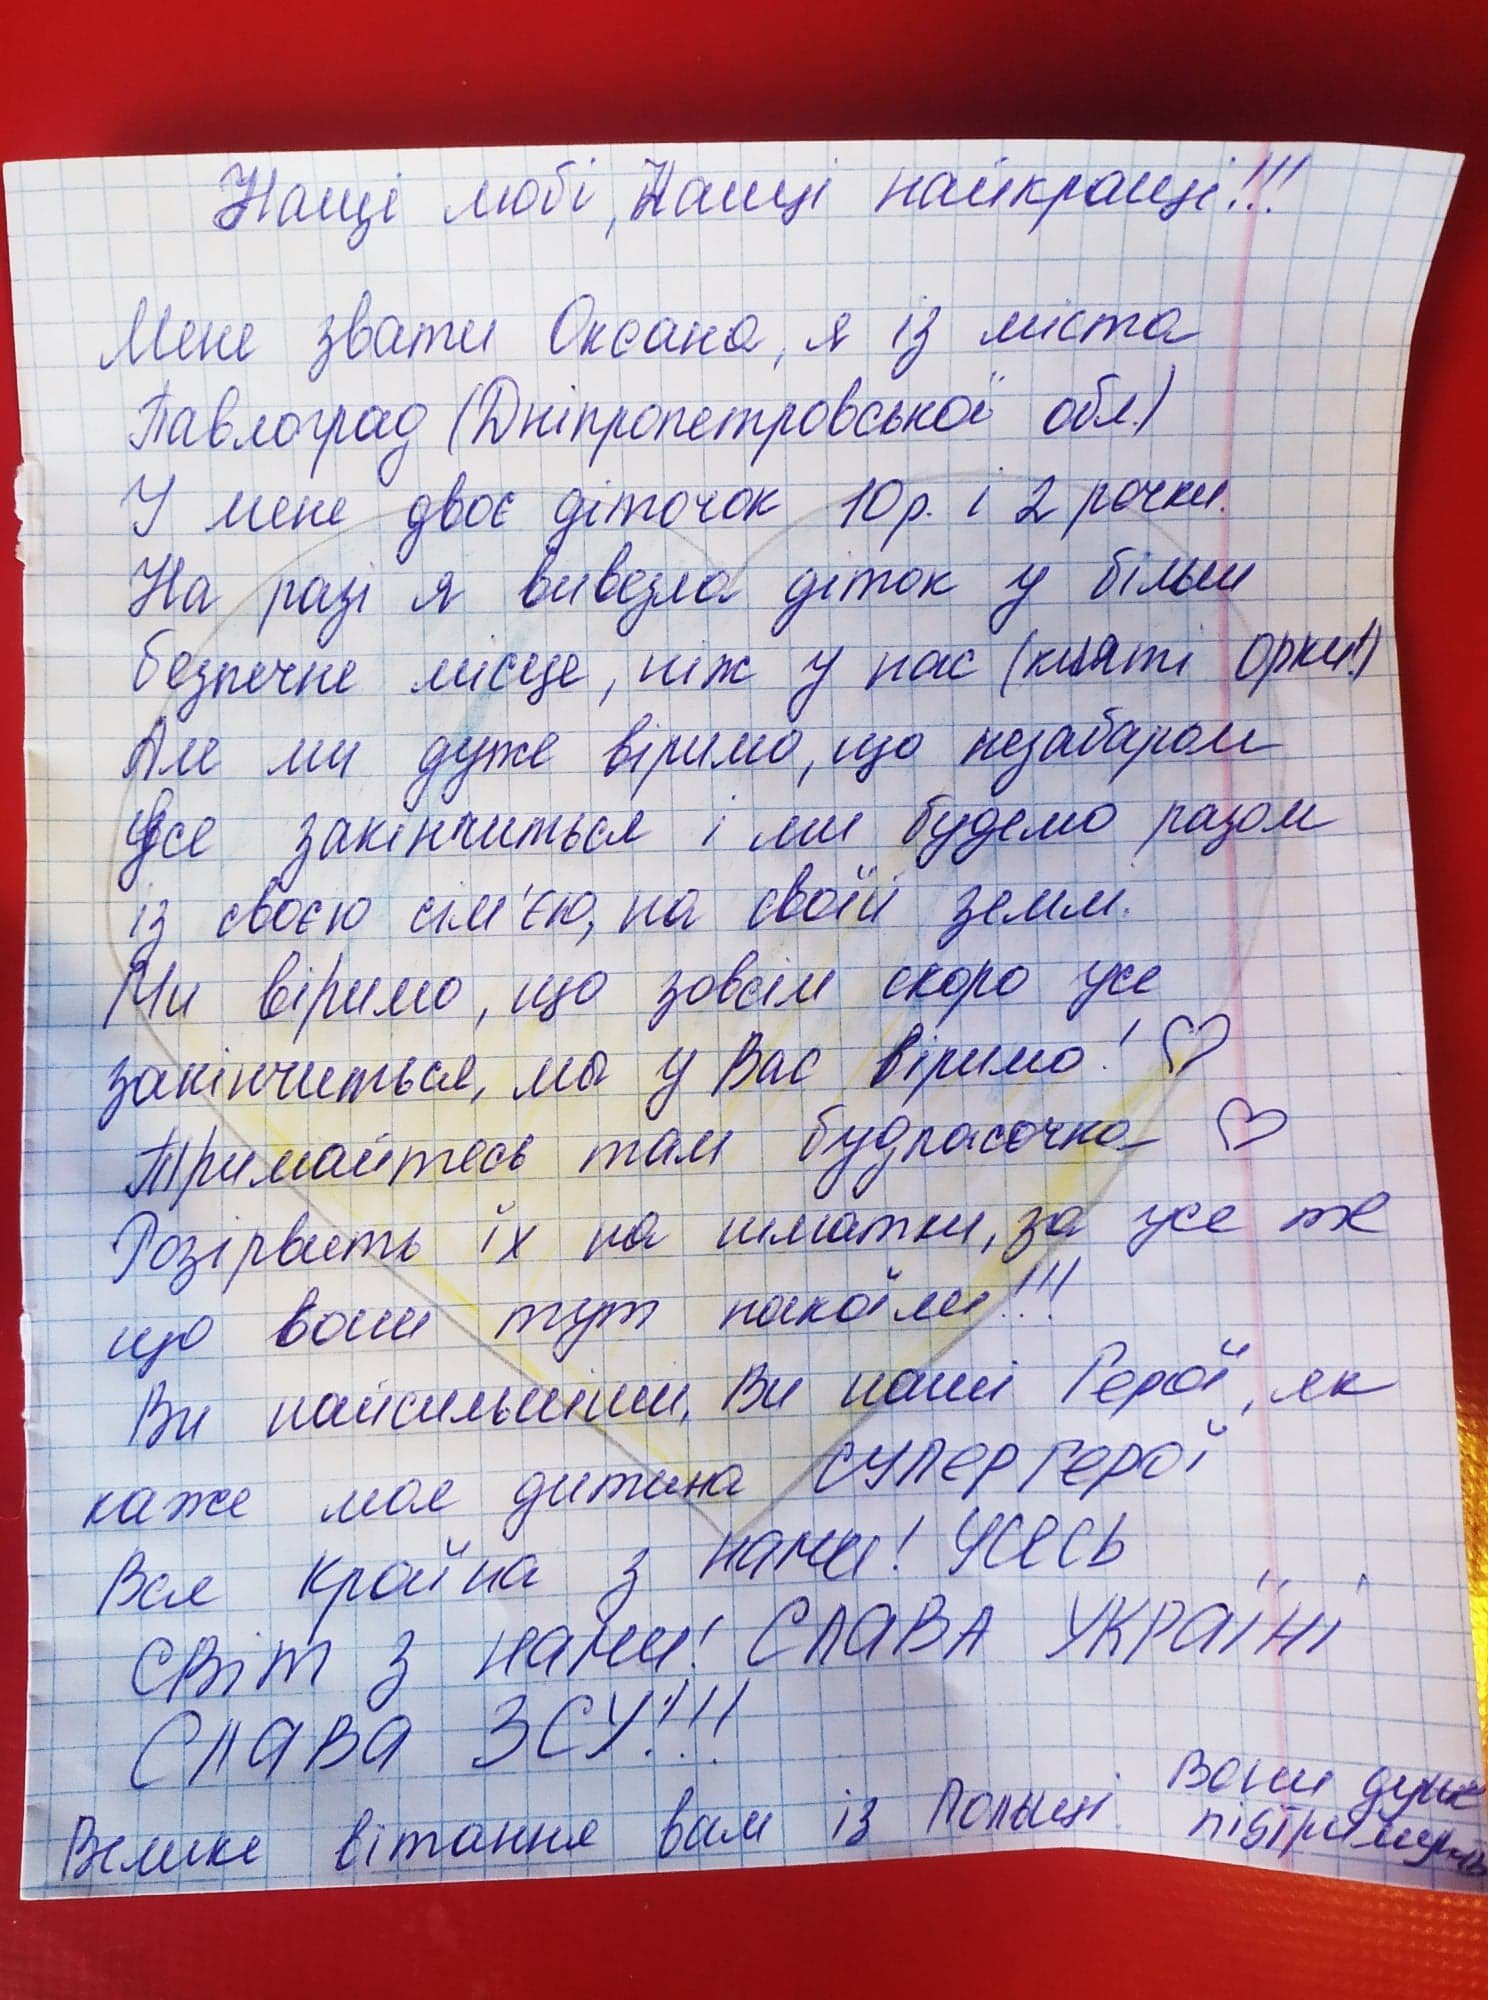 Нащі любі, Нашці найкращі!!!
Мене звати Оксана, я із міста
Павлоград (Дніпропетровської обл.)
У мене двоє діточок 10р. і 2 рочки.
На разі я вивезла діток у більш
безпечне місце, ніж у нас (кляті орки!)
Але ми дуже віримо, що незабаром
усе закінчиться і ми будемо разом
із своєю сім'єю, на своїй землі.
Ми віримо, що зовсім скоро усе
закінчиться, ми у Вас віримо! ♡
Тримайтесь там будласочка ♡
Розірвить їх на шматки, за усе те
що вони тут накоїли!!!
Ви найсильніши, Ви наші Герої, як
каже моя дитина СУПЕРГЕРОЇ
Вся країна з нами! УСЕСЬ
СВіт з нами! СЛАВА УКРАЇНІ
СЛАВА ЗСУ!!!
Велике вітання вам із Польщі. Вони дуже
підтримують